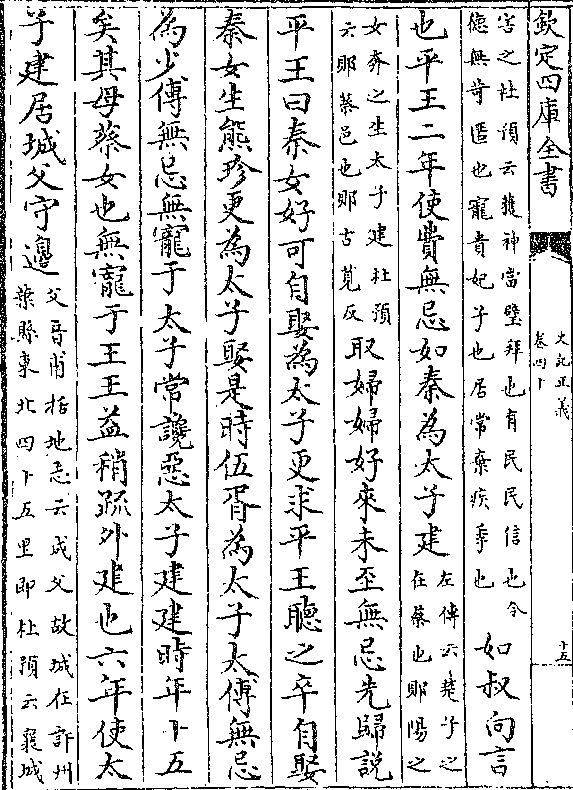 欽定四庫全書
史記正義
卷四十
十五
害之杜預云獲神當璧拜也有民民信也令
德無苛慝也寵貴妃子也居常棄疾季也
如叔向言
也平王二年使費無忌如秦為太子建
左傳云楚子之
在蔡也郹陽之
女奔之生太子建杜預
云郹蔡邑也郹古覓反
取婦婦好來未至無忌先歸說
平王曰秦女好可自娶為太子更求平王聽之卒自娶
秦女生熊珍更為太子娶是時伍胥為太子太傅無忌
為少傅無忌無寵于太子常讒惡太子建建時年十五
矣其母蔡女也無寵于王王益稍疏外建也六年使太
子建居城父守邊
父音甫括地志云城父故城在許州
葉縣東北四十五里即杜預云襄城